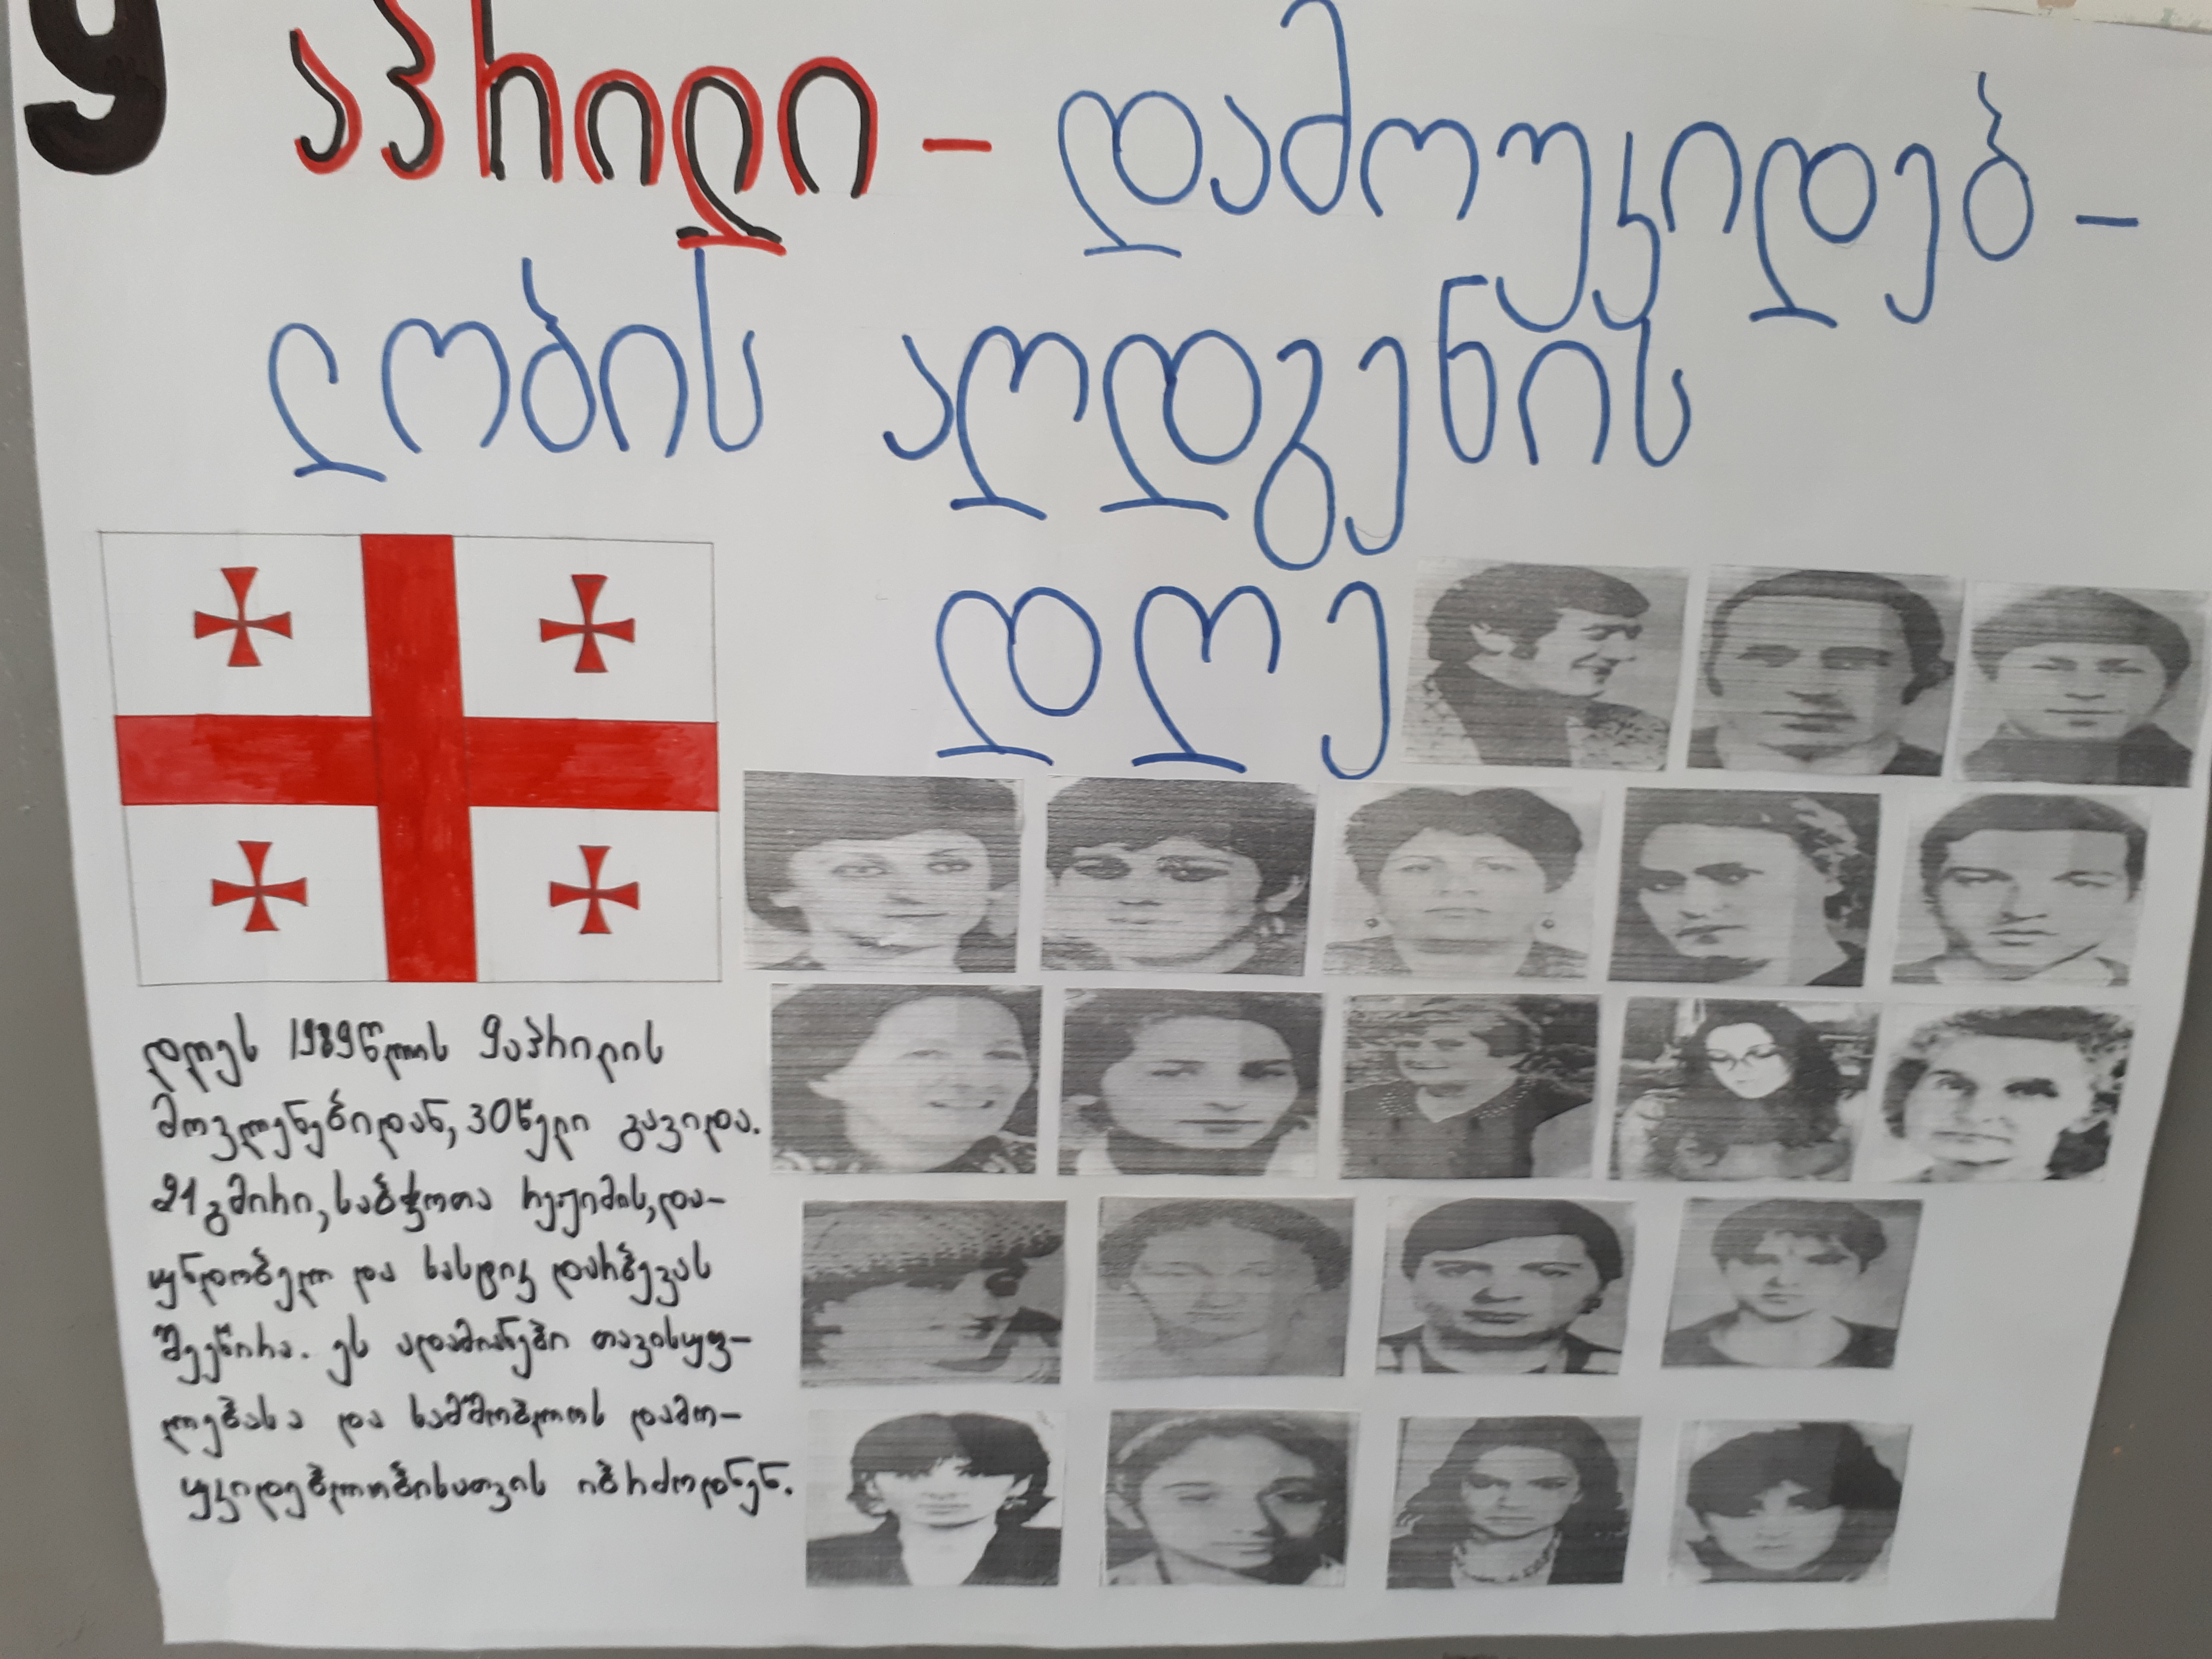 9 აპრილი - დამოუკიდებ -
ლობის აღდგენის
დღე
დღეს 1989 წლის 9 აპრილის
მოვლენებიდან, 30 წელი გავიდა.
21 გმირი, საბჭოთა რეჟიმის, და-
უნდობელ და სასტიკ დარბევას
შეეწირა. ეს ადამიანები თავისუფ-
ლებასა და სამშობლოს დამო-
უკიდებლობისათვის იბრძოდნენ.